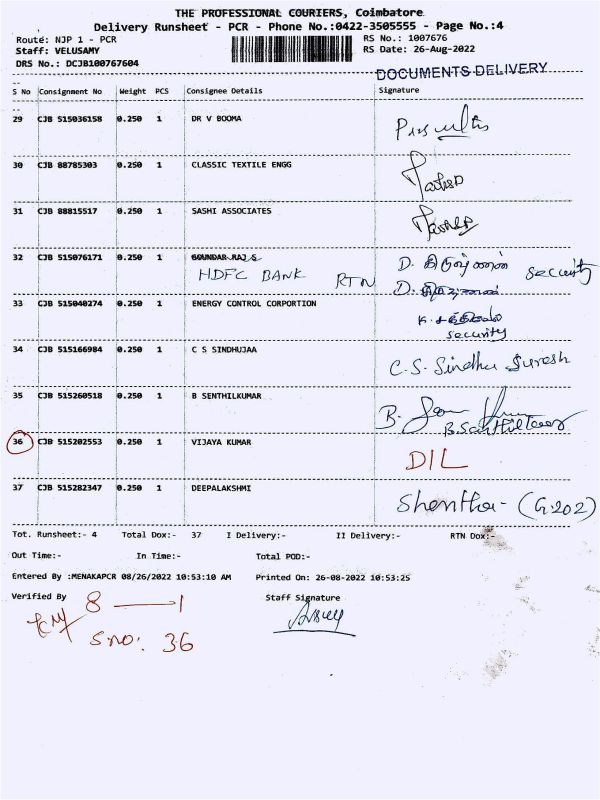 THE PROFESSIONAL COURIERS, Coimbatore
Delivery Runsheet - PCR - Phone No.:0422-3505555 - Page No.:4
Route: NJP 1 - PCR RS No.: 1007676
Staff: VELUSAMY RS Date: 26-Aug-2022
DRS No.: DCJB100767604
DOCUMENTS DELIVERY
S No Consignment No Weight PCS Consignee Details Signature
29 CJB 515036158 0.250 1 DR V BOOMA
30 CJB 88785303 0.250 1 CLASSIC TEXTILE ENGG
31 CJB 88815517 0.250 1 SASHI ASSOCIATES
32 CJB 515076171 0.250 1 GOUNDAR RAJ S D.
HDFC BANK RTN D. security
33 CJB 515040274 0.250 1 ENERGY CONTROL CORPORTION
security
34 CJB 515166984 0.250 1 C S SINDHUJAA C.S. Sindhu Suresh
35 CJB 515260518 0.250 1 B SENTHILKUMAR B.
36 CJB 515202553 0.250 1 VIJAYA KUMAR DIL
37 CJB 515282347 0.250 1 DEEPALAKSHMI Shentha - (G202)
Tot. Runsheet:- 4 Total Dox:- 37 I Delivery:- II Delivery:- RTN Dox:-
Out Time:- In Time:- Total POD:-
Entered By :MENAKAPCR 08/26/2022 10:53:10 AM Printed On: 26-08-2022 10:53:25
Verified By Staff Signature
8 — 1
S no: 36